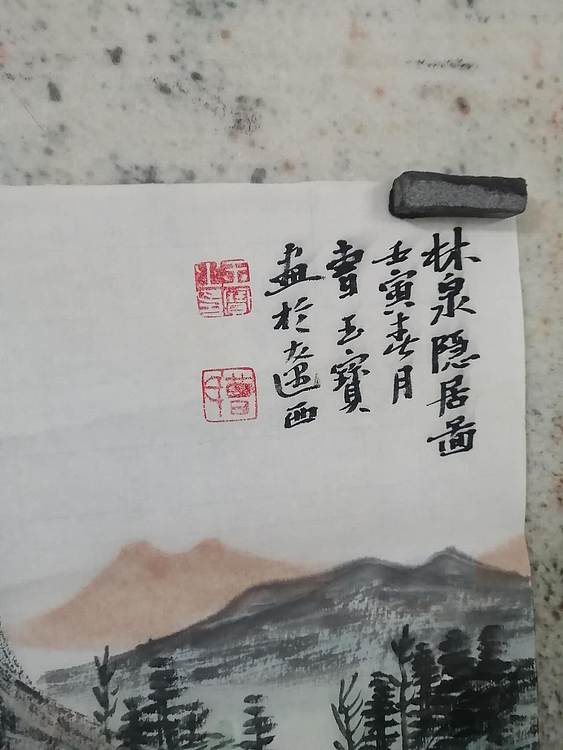 林泉隐居啚
壬寅春月
曹玉寶
畫於遼西